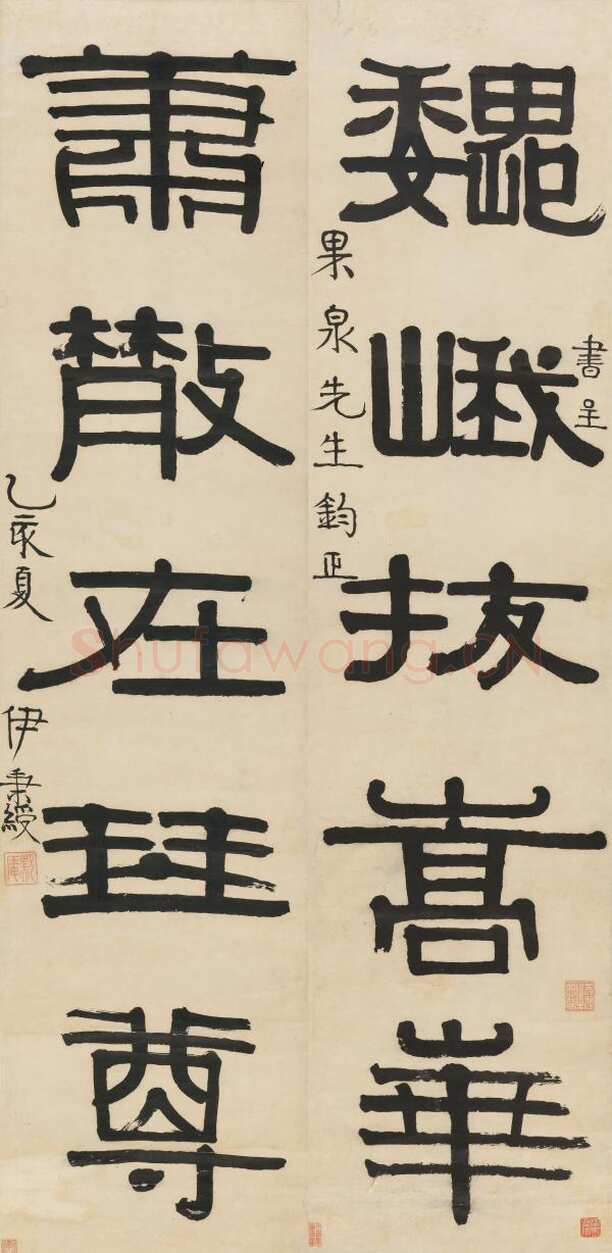 巍峨拔嵩華
書呈
果泉先生鈞正
蕭散在琴尊
乙亥夏 伊秉綬
Shufawang.CN